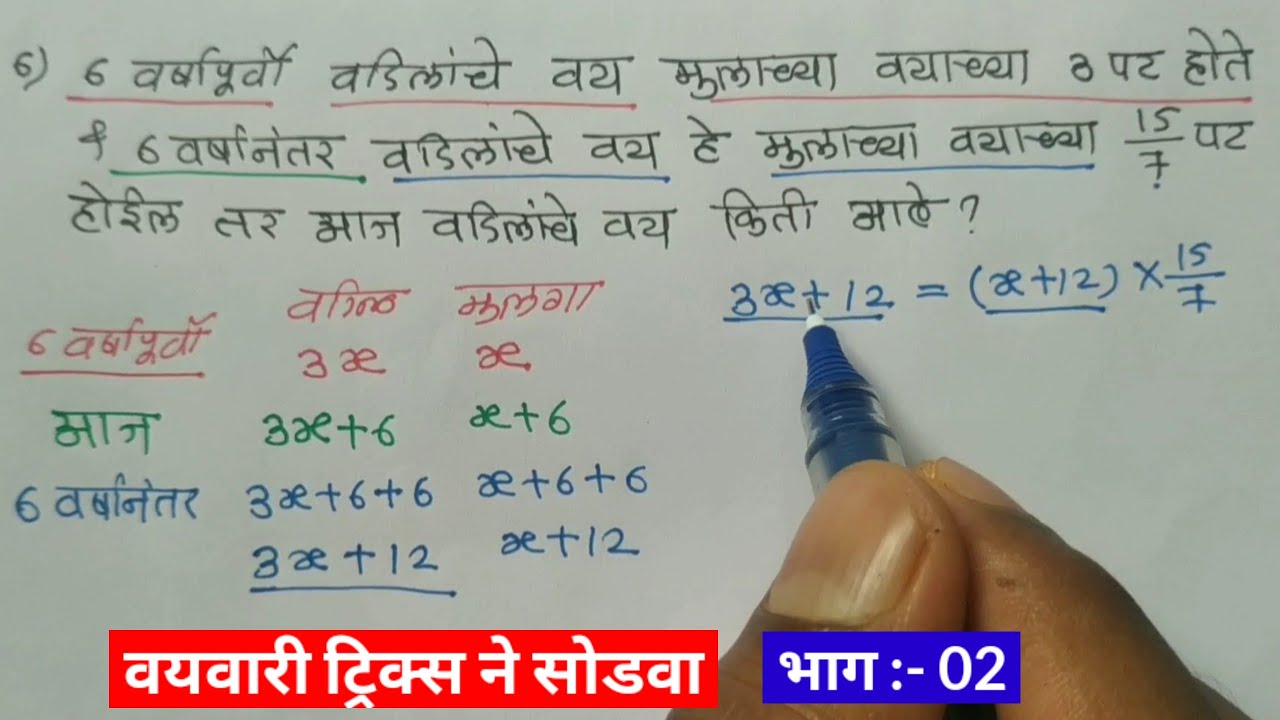 6) 6 वर्षापूर्वी वडिलांचे वय मुलाच्या वयाच्या 3 पट होते
व 6 वर्षानंतर वडिलांचे वय हे मुलाच्या वयाच्या 15/7 पट
होईल तर आज वडिलांचे वय किती आहे ?
वडिल मुलगा
6 वर्षापूर्वी 3x x
आज 3x+6 x+6
6 वर्षानंतर 3x+6+6 x+6+6
3x+12 x+12
3x+12 = (x+12) × 15/7
वयवारी ट्रिक्स ने सोडवा
भाग :- 02